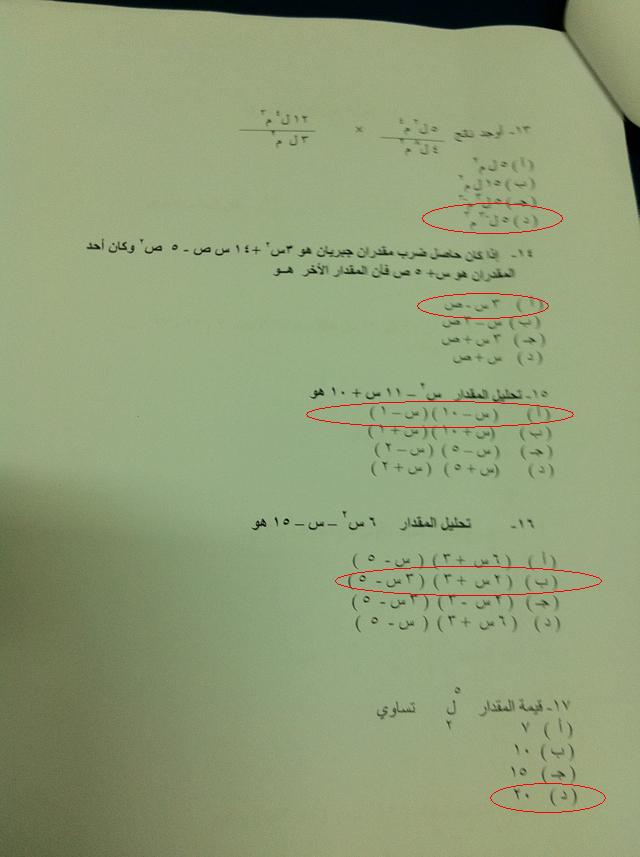 ١٣- أوجد ناتج ٥ل٢م٤ / ٤ل٨م٢ × ١٢ل٤م٣ / ٣ل م٢
(أ) ٥ل م٢
(ب) ١٥ل م٢
(جـ) ٥ل٣م-٣
(د) ٥ل-٣م٣
١٤- إذا كان حاصل ضرب مقدران جبريان هو ٣س٢ + ١٤ س ص - ٥ ص٢ وكان أحد
المقدران هو س+ ٥ ص فأن المقدار الأخر هـو
(أ) ٣ س - ص
(ب) س – ٣ ص
(جـ) ٣ س + ص
(د) س + ص
١٥- تحليل المقدار س٢ – ١١ س + ١٠ هو
(أ) (س – ١٠) (س – ١)
(ب) (س + ١٠) (س + ١)
(جـ) (س – ٥) (س – ٢)
(د) (س + ٥) (س + ٢)
١٦- تحليل المقدار ٦ س٢ – س – ١٥ هو
(أ) (٦س + ٣) (س - ٥)
(ب) (٢ س + ٣) (٣ س - ٥)
(جـ) (٢ س - ٣) (٣ س - ٥)
(د) (٦ س + ٣) (س - ٥)
١٧- قيمة المقدار ٥ل٢ تساوي
(أ) ٧
(ب) ١٠
(جـ) ١٥
(د) ٢٠